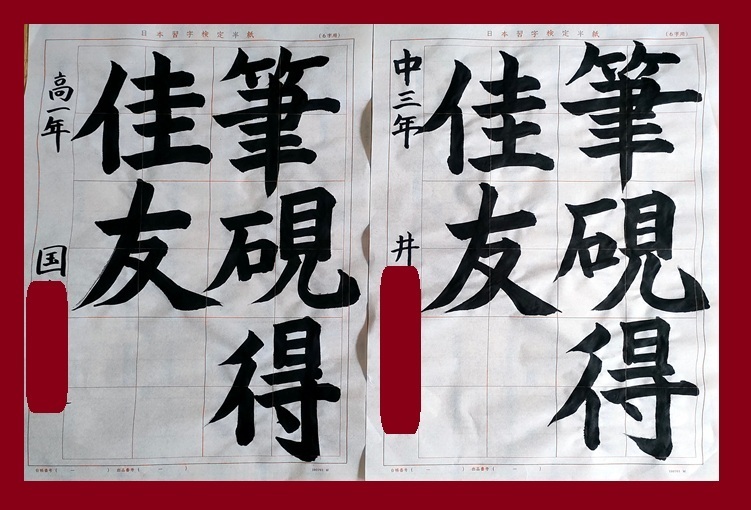 日本習字検定半紙
(6字用)
筆硯得
佳友
高一年
国
日本習字検定半紙
(6字用)
筆硯得
佳友
中三年
井